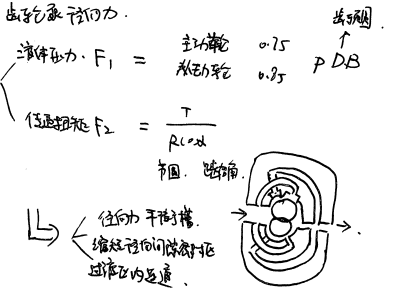 齿轮泵 径向力.
齿顶圆
液体压力. F₁ = 主动轮 0.75
从动轮 0.85 P D B
传递扭矩 F₂ = T / Rcosα
节圆. 啮合角.
径向力平衡槽.
缩短径向间隙密封区
过渡区内连通.